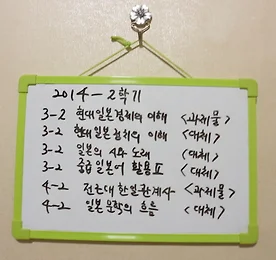 2014-2학기
3-2 현대일본경제의 이해 <과제물>
3-2 현대일본정치의 이해 <대체>
3-2 일본의 시와 노래 <대체>
3-2 중급일본어 활용Ⅱ <대체>
4-2 전근대한일관계사 <과제물>
4-2 일본문학의 흐름 <대체>